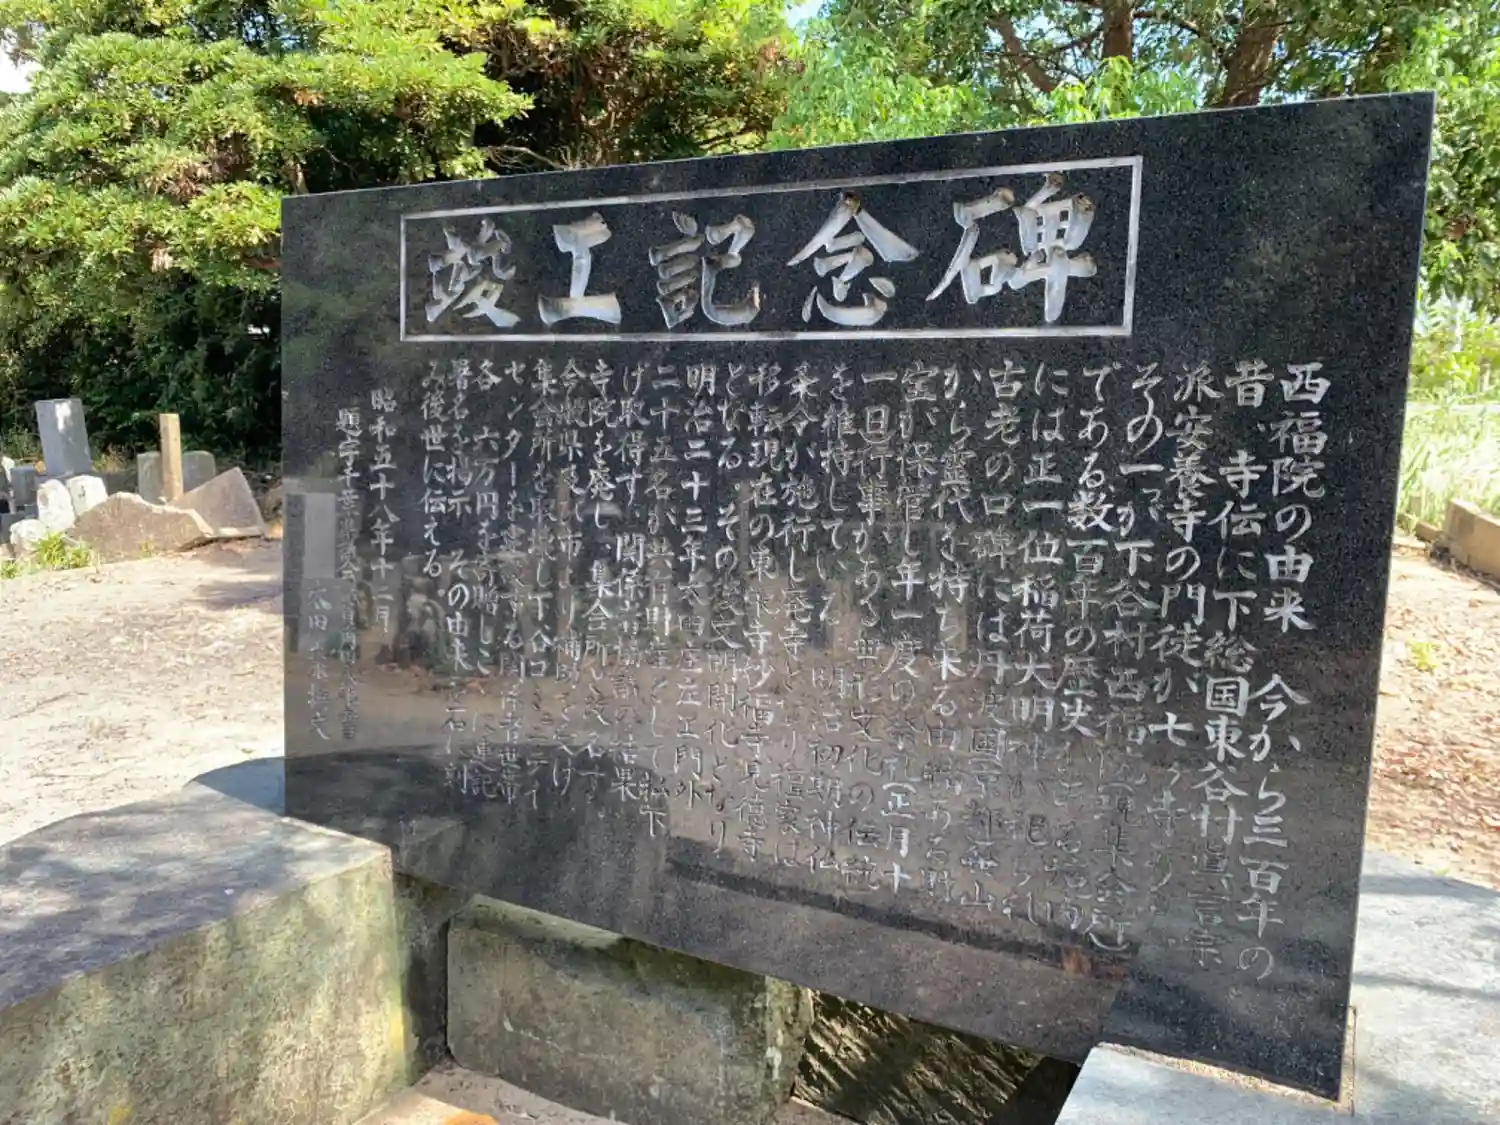 竣工記念碑
西福院の由来 今から三百年の
昔、寺伝に下総国東谷廿真言宗
派安養寺の門徒が七ヶ寺あり
その一つが下谷村西福院(現集会所)
である数百年の歴史
には正一位稲荷大明神が祀られ
古老の口碑には丹波国京都
から霊代を持ち来る由緒ある財
宝が保管し年一度の祭礼(正月十
一日)行事がある無形文化の伝統
を維持している 明治初期神仏
棄令が施行し廃寺となり檀家は
移転現在の東永寺妙福寺見徳寺
となる。その後文明開化となり
明治二十三年大雨庄左エ門外
二十五名が共有財産として払下
げ取得す。関係者協議の結果
寺院を廃し、集会所と改名す。
今般県及び市より補助を受け
集会所を取壊し下谷コミニテイ
センターを建設する関係者世帯
各 六万円を寄贈しここに連記
署名を札示 その由来を石に刻
み後世に伝える。
昭和五十八年十二月
題字千葉県議会